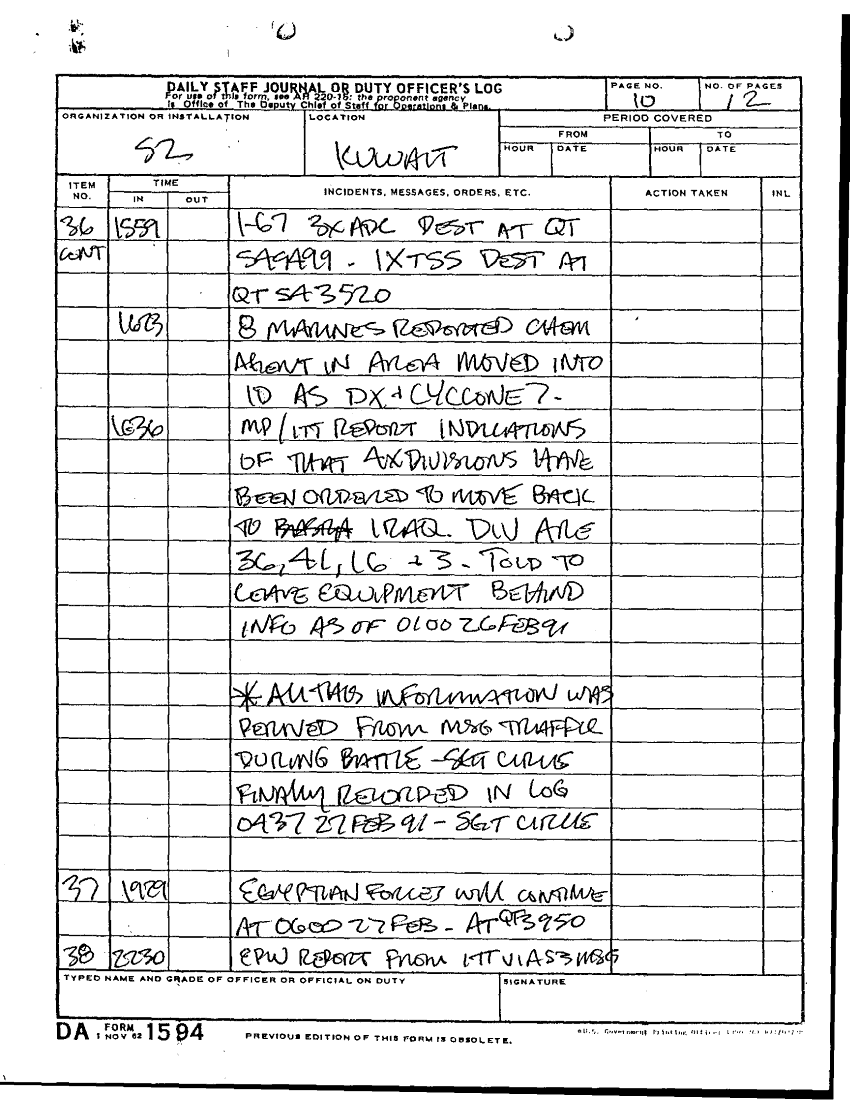 DAILY STAFF JOURNAL OR DUTY OFFICER'S LOG
For use of this form, see AR 220-15: the proponent agency
is Office of The Deputy Chief of Staff for Operations & Plans.
PAGE NO.
10
NO. OF PAGES
12
ORGANIZATION OR INSTALLATION
S2
LOCATION
KUWAIT
PERIOD COVERED
FROM
TO
HOUR
DATE
HOUR
DATE
ITEM NO.
TIME
IN
OUT
INCIDENTS, MESSAGES, ORDERS, ETC.
ACTION TAKEN
INL
36 1559 1-67 3XADC DEST AT QT
CONT - 1XT55 DEST AT
QT543520
1623 8 MARINES REPORTED CHEM
AGENT IN AREA MOVED INTO
ID AS DX + CYCLONE 7-
1636 MP/ITT REPORT INDICATIONS
OF THAT 4X DIVISIONS HAVE
BEEN ORDERED TO MOVE BACK
TO BASRA IRAQ. DIV ARE
36, 41, 16 + 3 - TOLD TO
LEAVE EQUIPMENT BEHIND
INFO AS OF 0100 26FEB91
* ALL THIS INFORMATION WAS
DERIVED FROM MSG TRAFFIC
DURING BATTLE - SGT
FINALLY RECORDED IN LOG
0437 27FEB91 - SGT
37 1929 EGYPTIAN FORCES WILL CONTINUE
AT 0600 27FEB - AT QF3950
38 2230 EPW REPORT FROM ITT VIA S3 MSG
TYPED NAME AND GRADE OF OFFICER OR OFFICIAL ON DUTY
SIGNATURE
DA FORM 1594
1 NOV 62
PREVIOUS EDITION OF THIS FORM IS OBSOLETE.